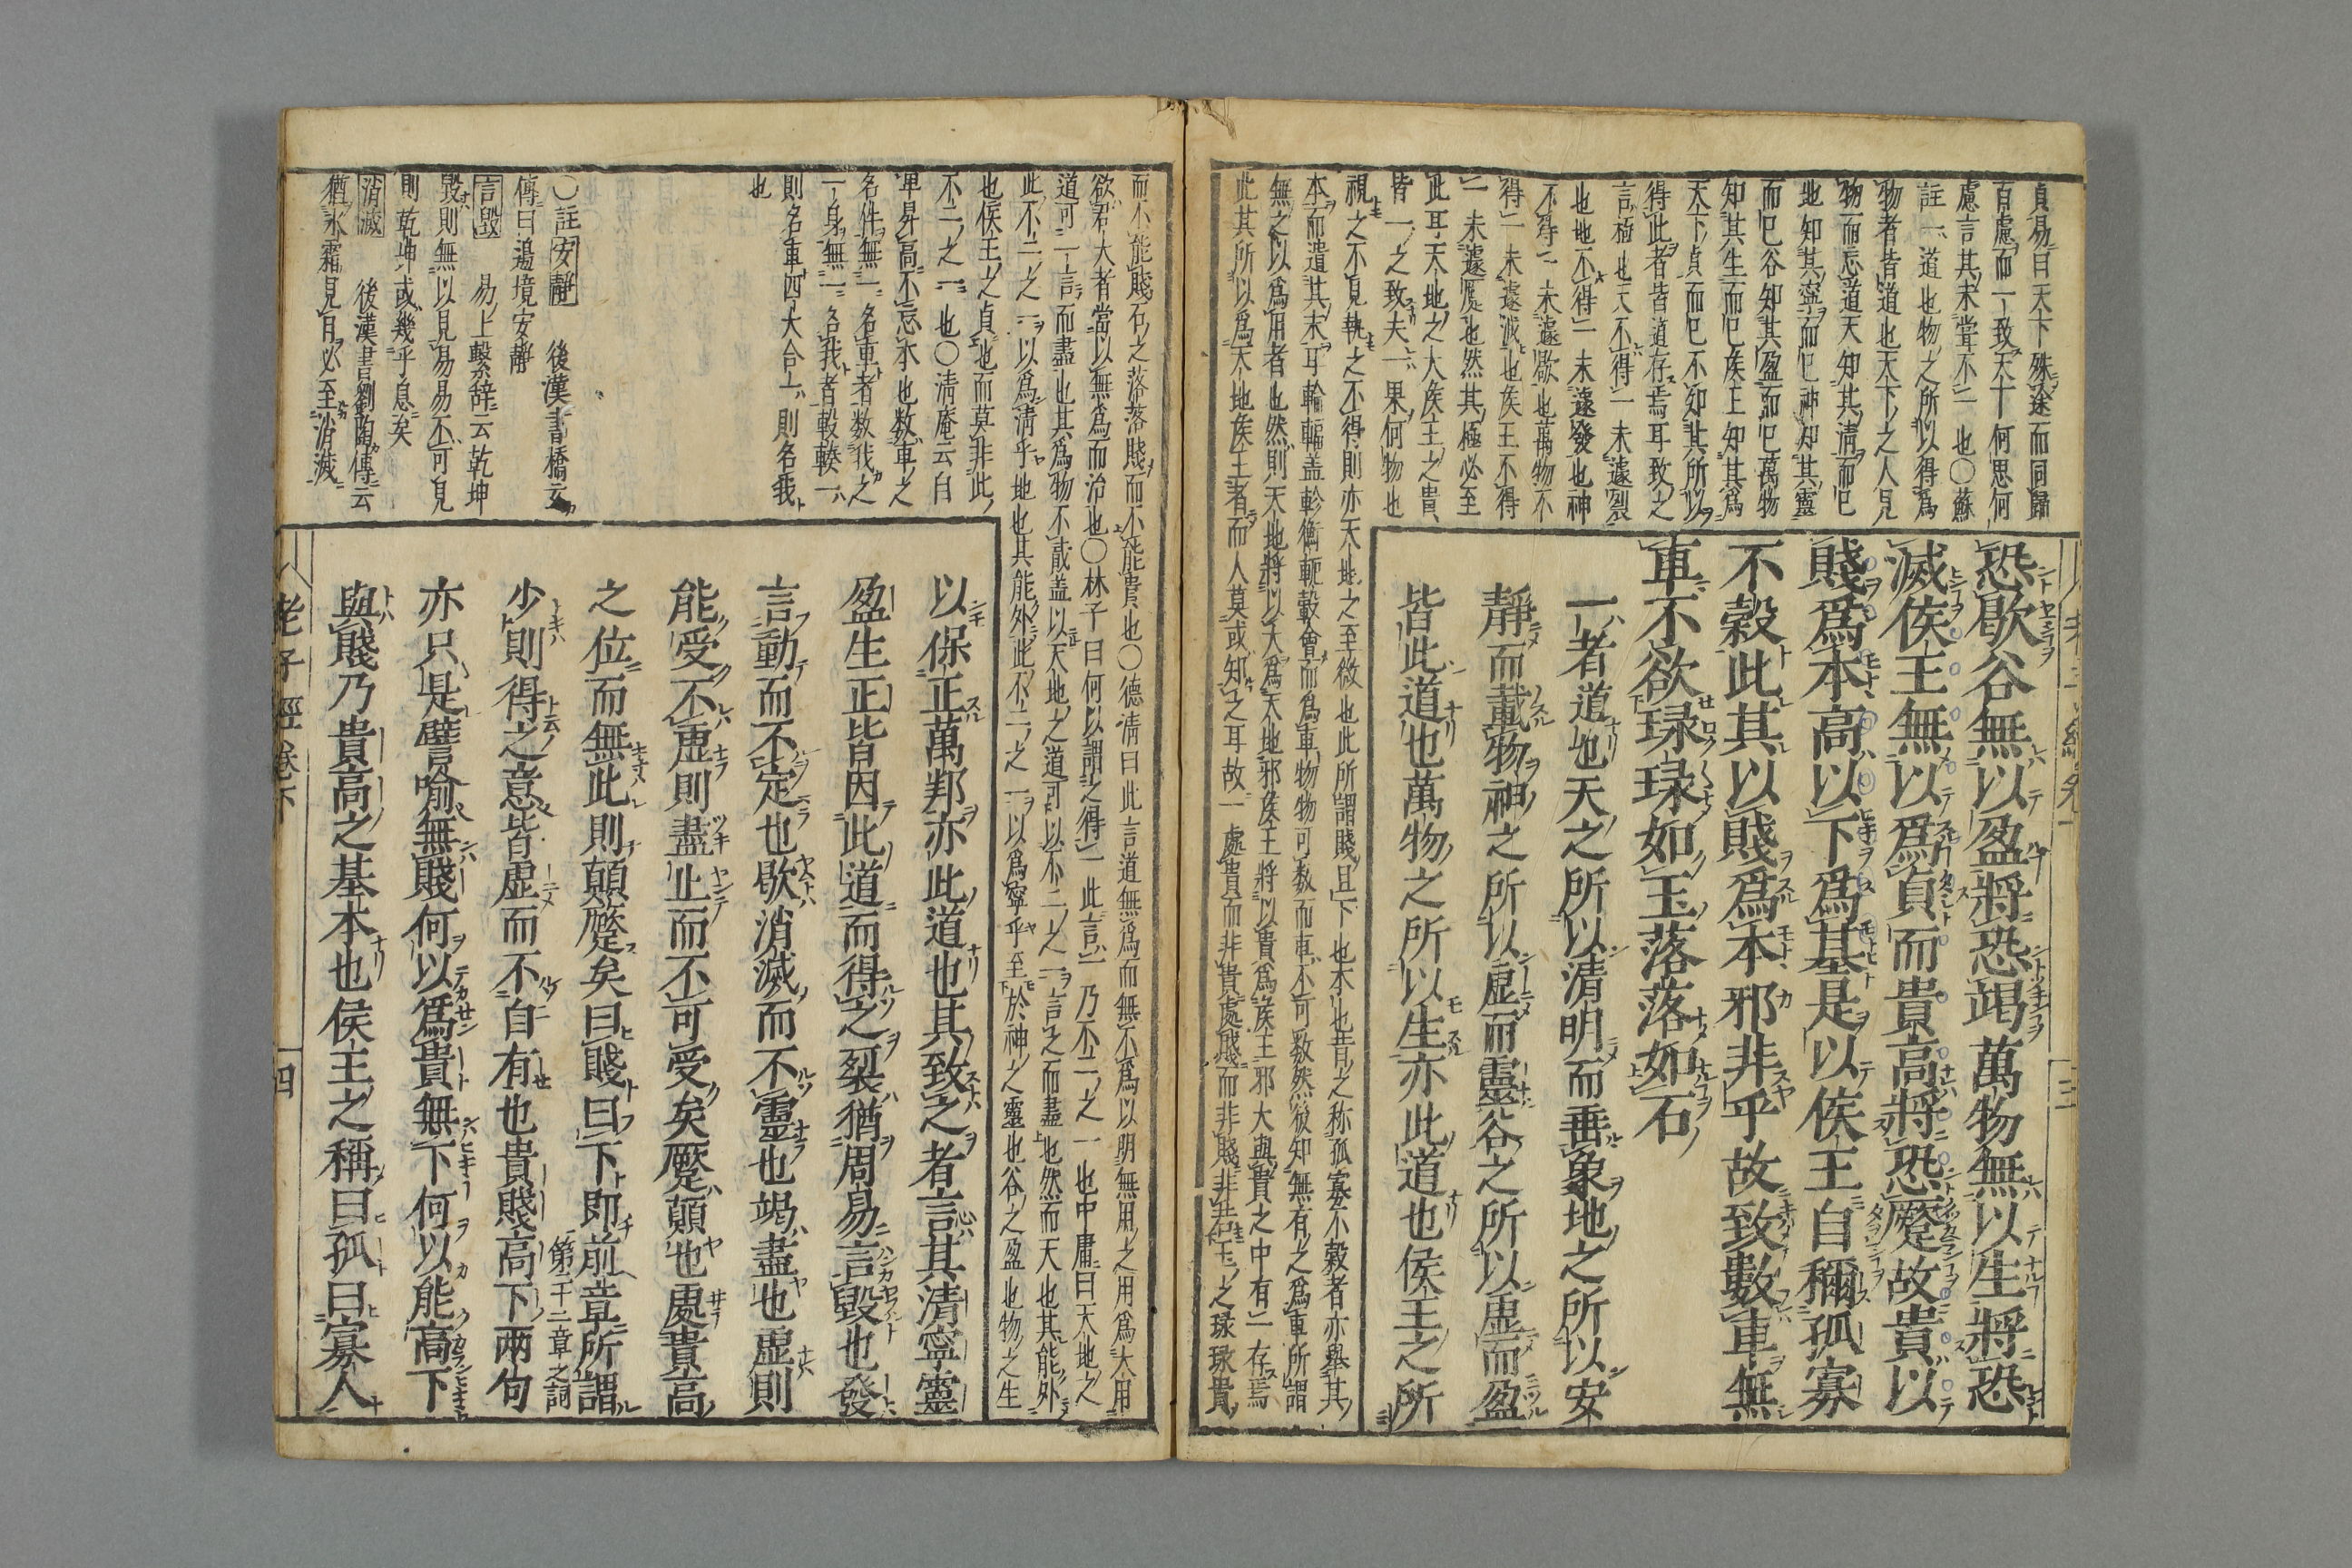 貞易曰天下殊途而同歸
百慮而一致天下何思何
慮言其未嘗不一也○蘇
註一道也物之所以得爲
物者皆道也天下之人見
物而忘道天知其清而已
地知其寧而已神知其靈
而已谷知其盈而已萬物
知其生而已侯王知其爲
天下貞而已不知其所以
得此者皆道存焉耳致之
言極也天不得一未遽裂
也地不得一未遽發也神
不得一未遽歇也萬物不
得一未遽滅也侯王不得
一未遽蹷也然其極必至
此耳天地之大侯王之貴
皆一之致夫一果何物也
視之不見執之不得則亦天地之至微也此所謂賤且下也本也昔之称孤寡不穀者亦舉其
本而遺其末耳輪輻盖軫衡軛轂會而爲車物物可数而車不可数然後知無有之爲車所謂
無之以爲用者也然則天地將以大爲天地邪侯王將以貴爲侯王邪大與貴之中有一存焉
此其所以爲天地侯王者而人莫或知之耳故一處貴而非貴處賤而非賤非若玉之琭琭貴
恐歇谷無以盈將恐竭萬物無以生將恐
滅侯王無以爲貞而貴高將恐蹷故貴以
賤爲本高以下爲基是以侯王自稱孤寡
不穀此其以賤爲本邪非乎故致數車無
車不欲琭琭如玉落落如石
一者道也天之所以清明而垂象地之所以安
靜而載物神之所以虛而靈谷之所以虛而盈
皆此道也萬物之所以生亦此道也侯王之所
而不能賤石之落落賤而不能貴也○德清曰此言道無爲而無不爲以明無用之用爲大用
欲君大者當以無爲而治也○林子曰何以謂之得一此言一乃不二之一也中庸曰天地之
道可一言而盡也其爲物不貳盖以天地之道可以不二之一言之而盡也然而天也其能外
此不二之一以爲清乎地也其能外此不二之一以爲寧乎至於神之靈也谷之盈也物之生
也侯王之貞也而莫非此
不二之一也○清庵云自
卑昇高不忘本也数車之
名件無一名車者数我之
一身無一名我者轂輳一
則名車四大合一則名我
也
○註安靜　後漢書橋玄
傳曰邊境安靜
言毀　易上繫辞云乾坤
毀則無以見易易不可見
則乾坤或幾乎息矣
消滅　後漢書劉陶傳云
猶氷霜見日必至消滅
以保正萬邦亦此道也其致之者言其清寧靈
盈生正皆因此道而得之裂猶周易言毀也發
言動而不定也歇消滅而不靈也竭盡也虛則
能受不虛則盡止而不可受矣蹷顛也處貴高
之位而無此則顛蹷矣曰賤曰下即前章所謂
第二十二章之詞
少則得之意皆虛而不自有也貴賤高下两句
亦只是譬喻無賤何以爲貴無下何以能高下
與賤乃貴高之基本也侯王之稱曰孤曰寡人
老子經卷下
四